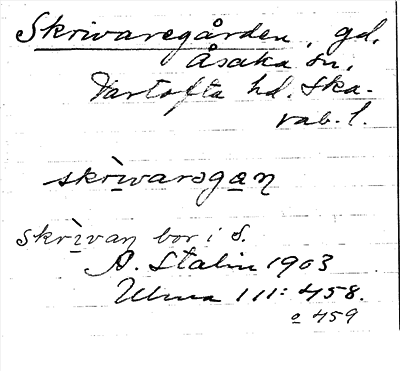 Skrivaregården, gd,
Åsaka sn,
Vartofta hd. Ska-
rab. l.
skrìvarəgan
skrìvan bor i S.
A. Stalin 1903
Ulma 111: 458.
o 459